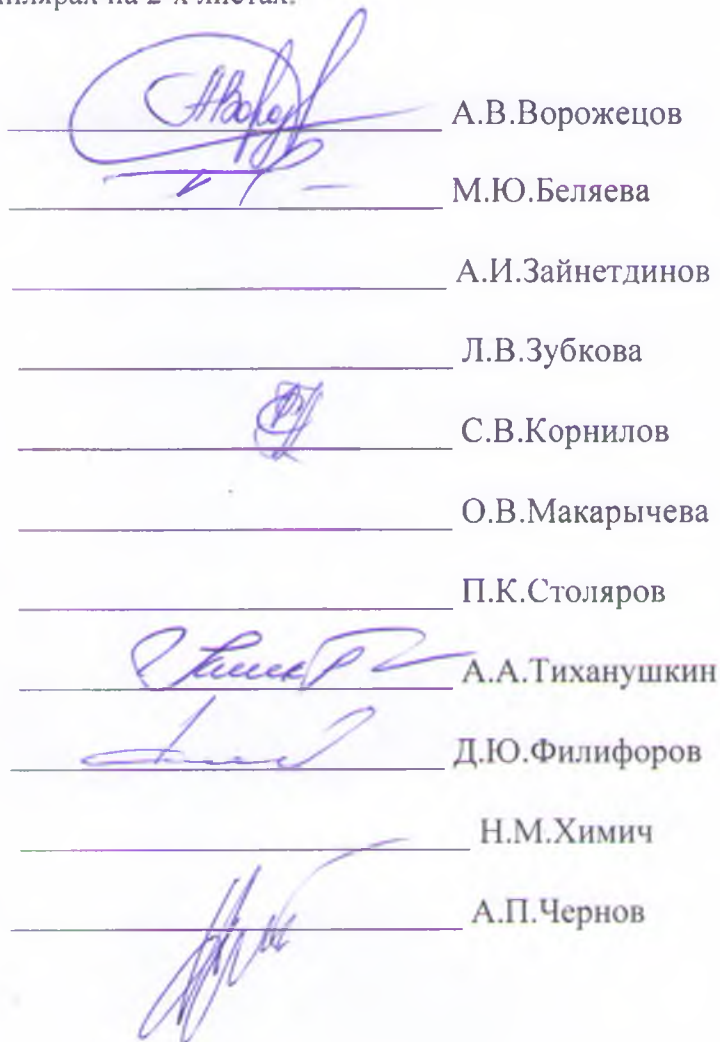 на 2-х листах.
А.В.Ворожецов
М.Ю.Беляева
А.И.Зайнетдинов
Л.В.Зубкова
С.В.Корнилов
О.В.Макарычева
П.К.Столяров
А.А.Тиханушкин
Д.Ю.Филифоров
Н.М.Химич
А.П.Чернов